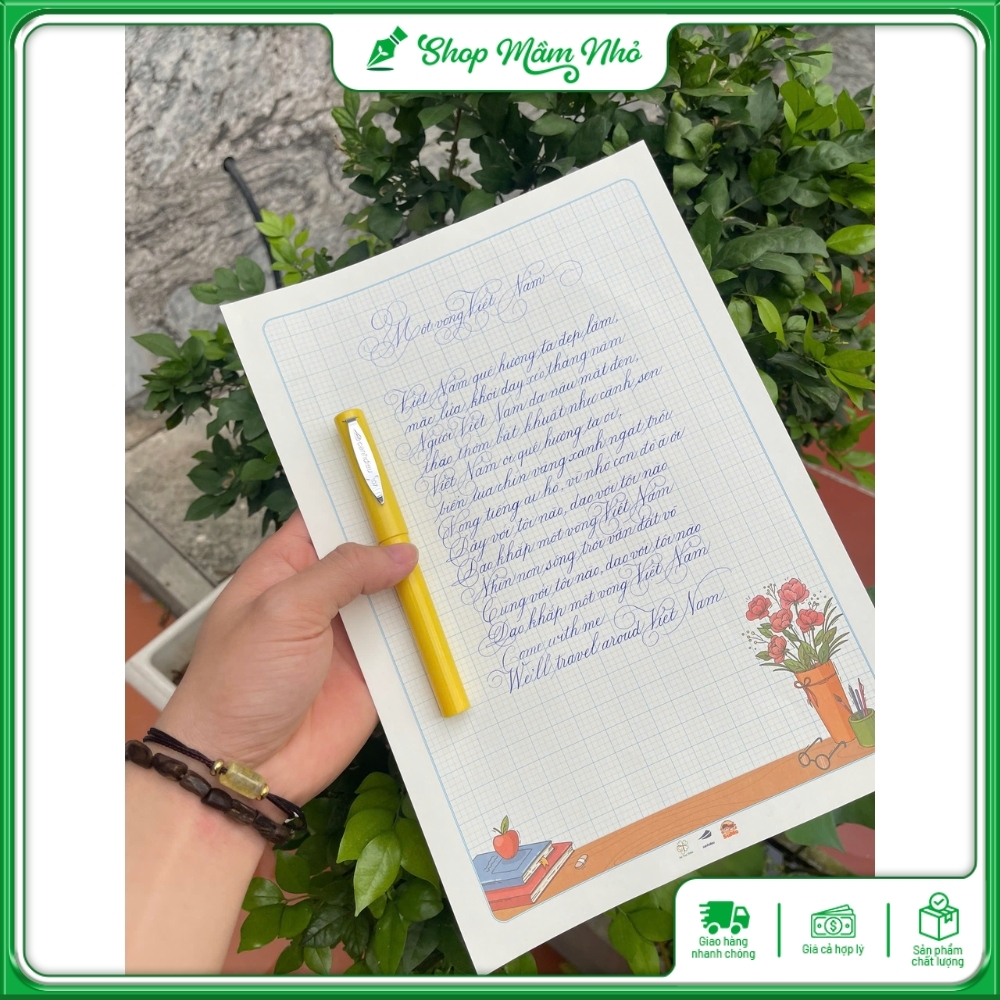 Shop Mầm Nhỏ
Một vòng Việt Nam
Việt Nam quê hương ta đẹp lắm,
mặc lửa khói dày xéo tháng năm
Người Việt Nam da nâu mắt đen,
thảo thơm bất khuất như cánh sen
Việt Nam ơi quê hương ta ơi,
biển lúa chín vàng xanh ngát trời
Vọng tiếng ai hò ví nhớ con đò ơi
Đây với tôi nào, dạo với tôi nào
Dạo khắp một vòng Việt Nam
Nhìn non sông trời văn đất võ
Cùng với tôi nào, dạo với tôi nào
Dạo khắp một vòng Việt Nam
Come with me
We'll travel aroud Việt Nam.
Giao hàng nhanh chóng
Giá cả hợp lý
Sản phẩm chất lượng